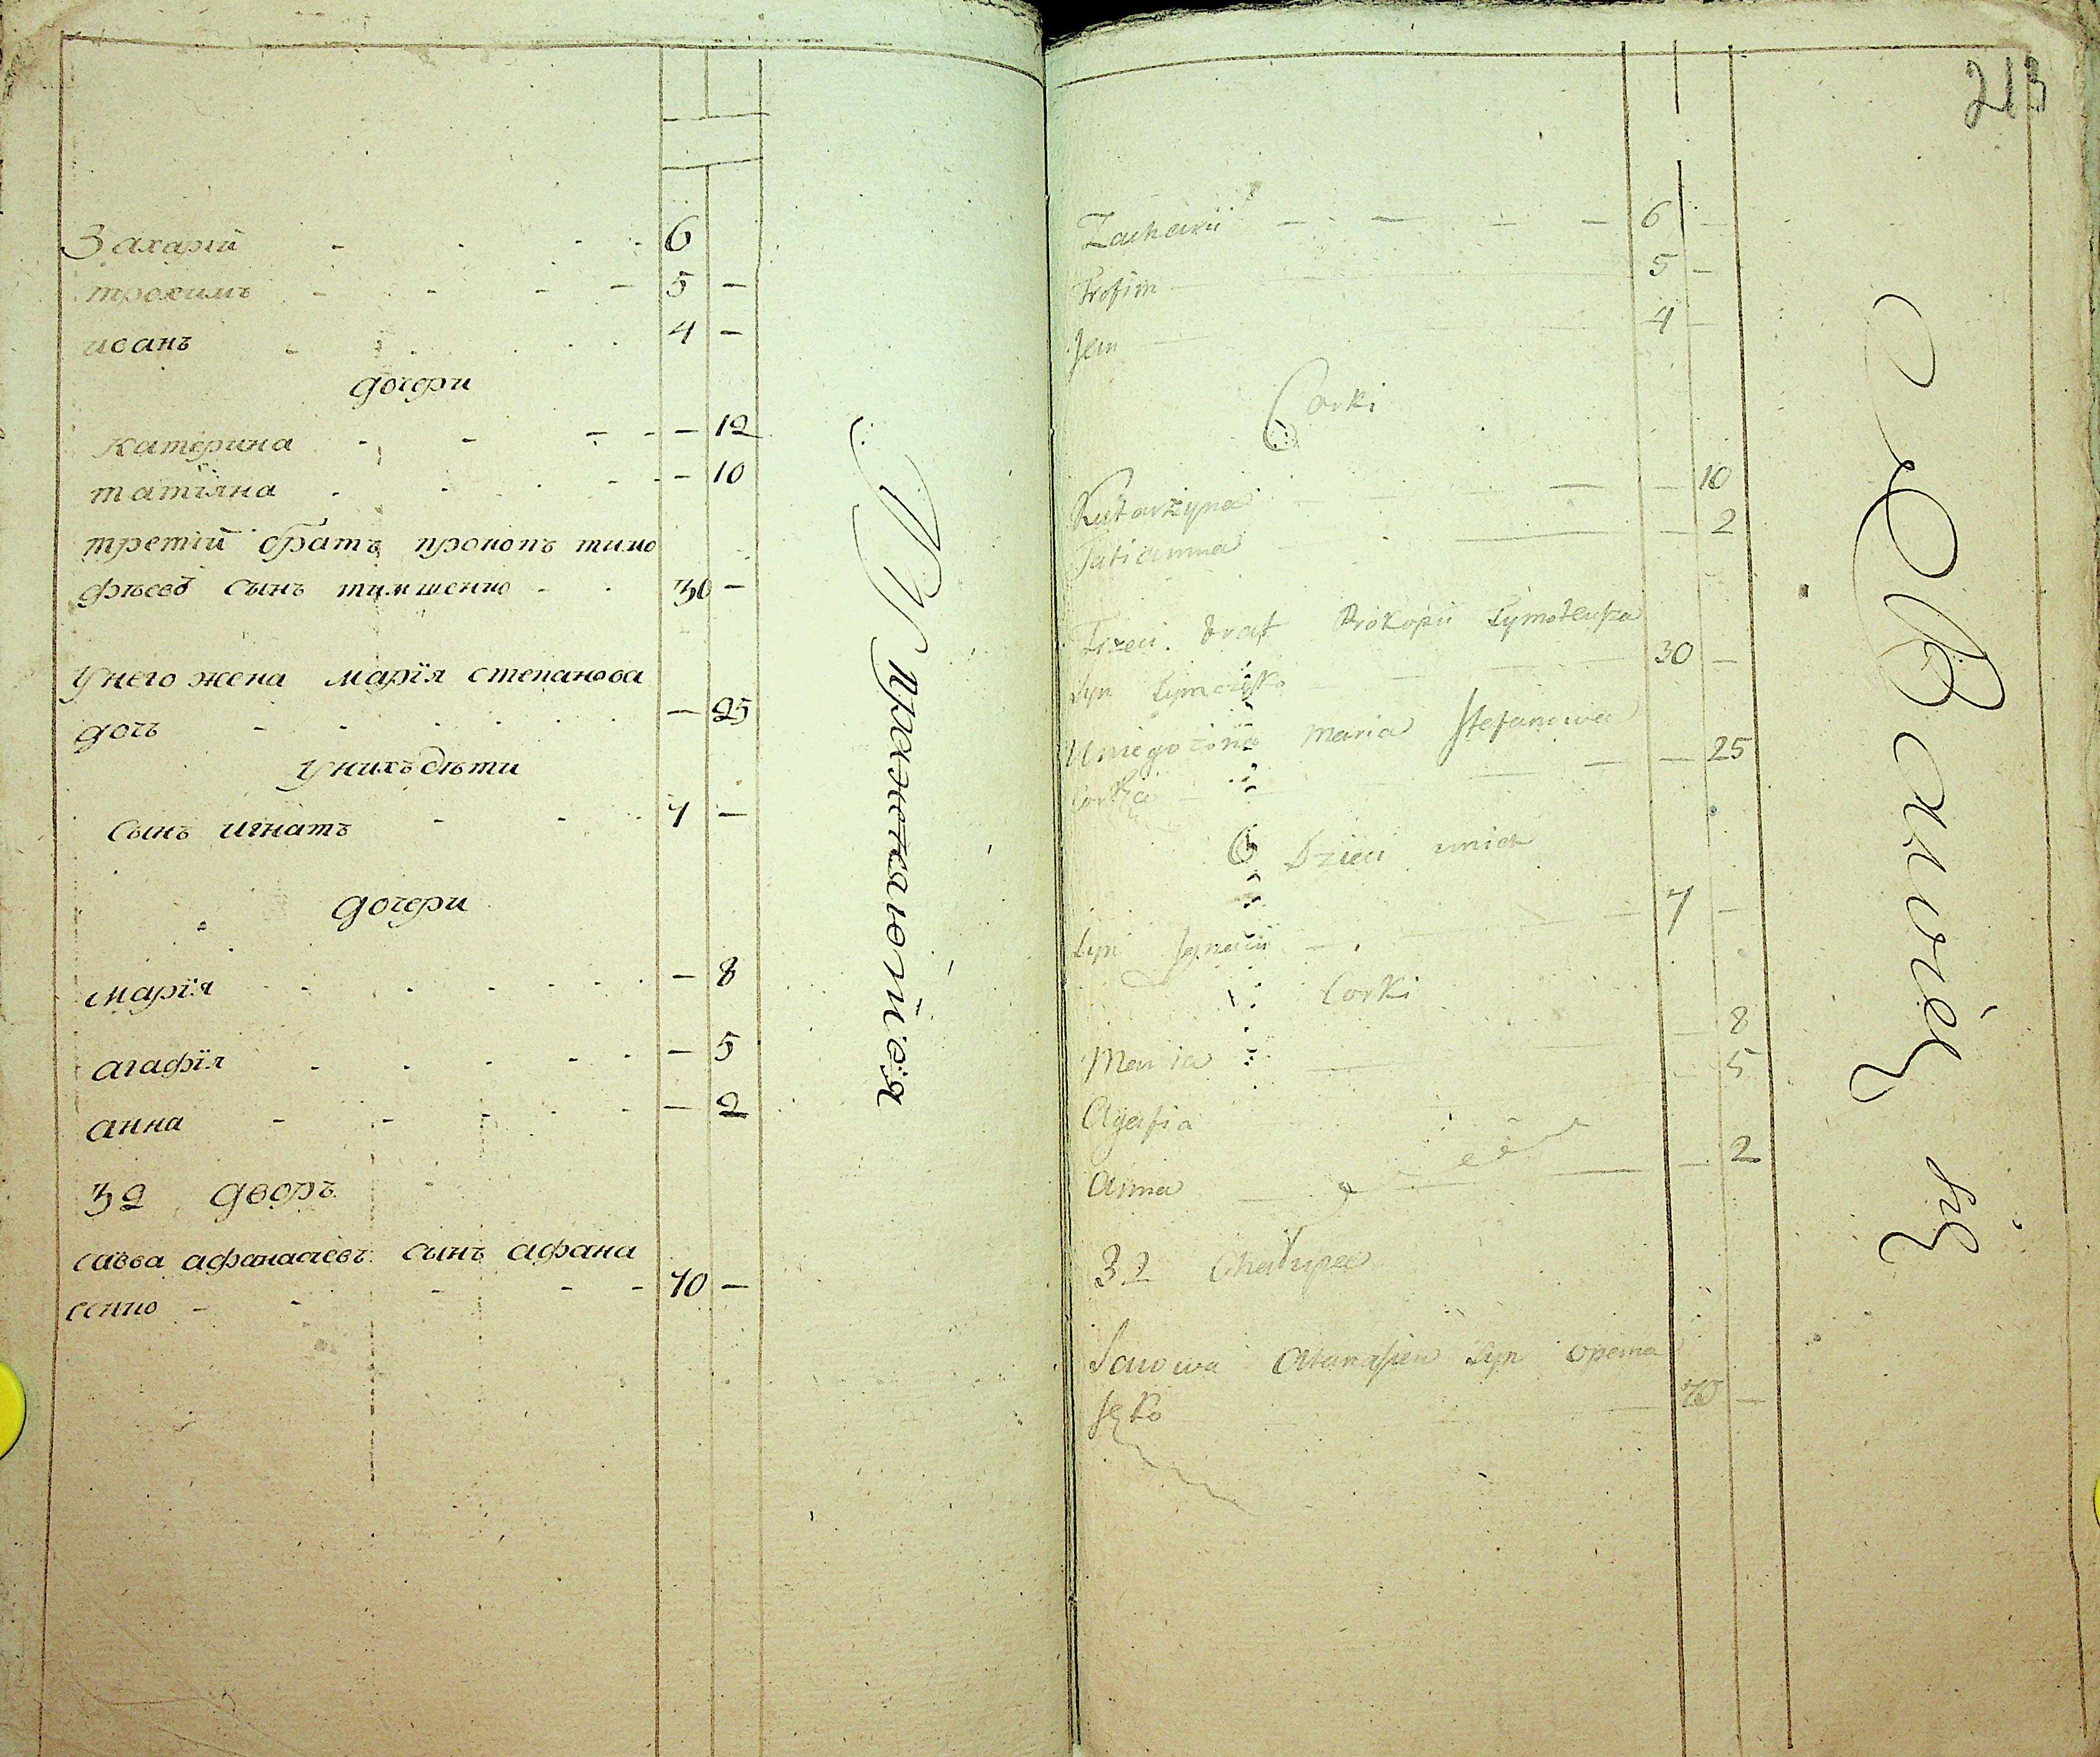 Захарій - - - - 6
трохимъ - - - - 5 -
иванъ - - - - 4 -
дочери
катерина - - - - - 12
татіяна - - - - - 10
третій братъ прокопъ тимо
фѣевъ сынъ тимшенко - - 30 -
У него жена марїя степанова
дочь - - - - - 25
У нихъ дѣти
сынъ игнатъ - - - 7 -
дочери
марїя - - - - - 8
агафїя - - - - - 5
анна - - - - - 2
32 дворъ
савва афанасіевъ сынъ афана
сенко - - - - 70 -
213
Zacharii - - - - 6 -
Trofim - 5 -
Jan - 4 -
Corki
Katarzyna - - - 10
Tatianna - - 2
Trzeci brat Prokopii Tymoteusza
Syn - - 30 -
U niego żona Maria Stefanowa
Corka - - - 25
Dzieci u nich
Syn Jgnacii - - 7 -
Corki
Maria - - 8
Agafia - 5
Anna - - 2
32 Chałupa
Sawwa Atanasieu Syn
- 70 -